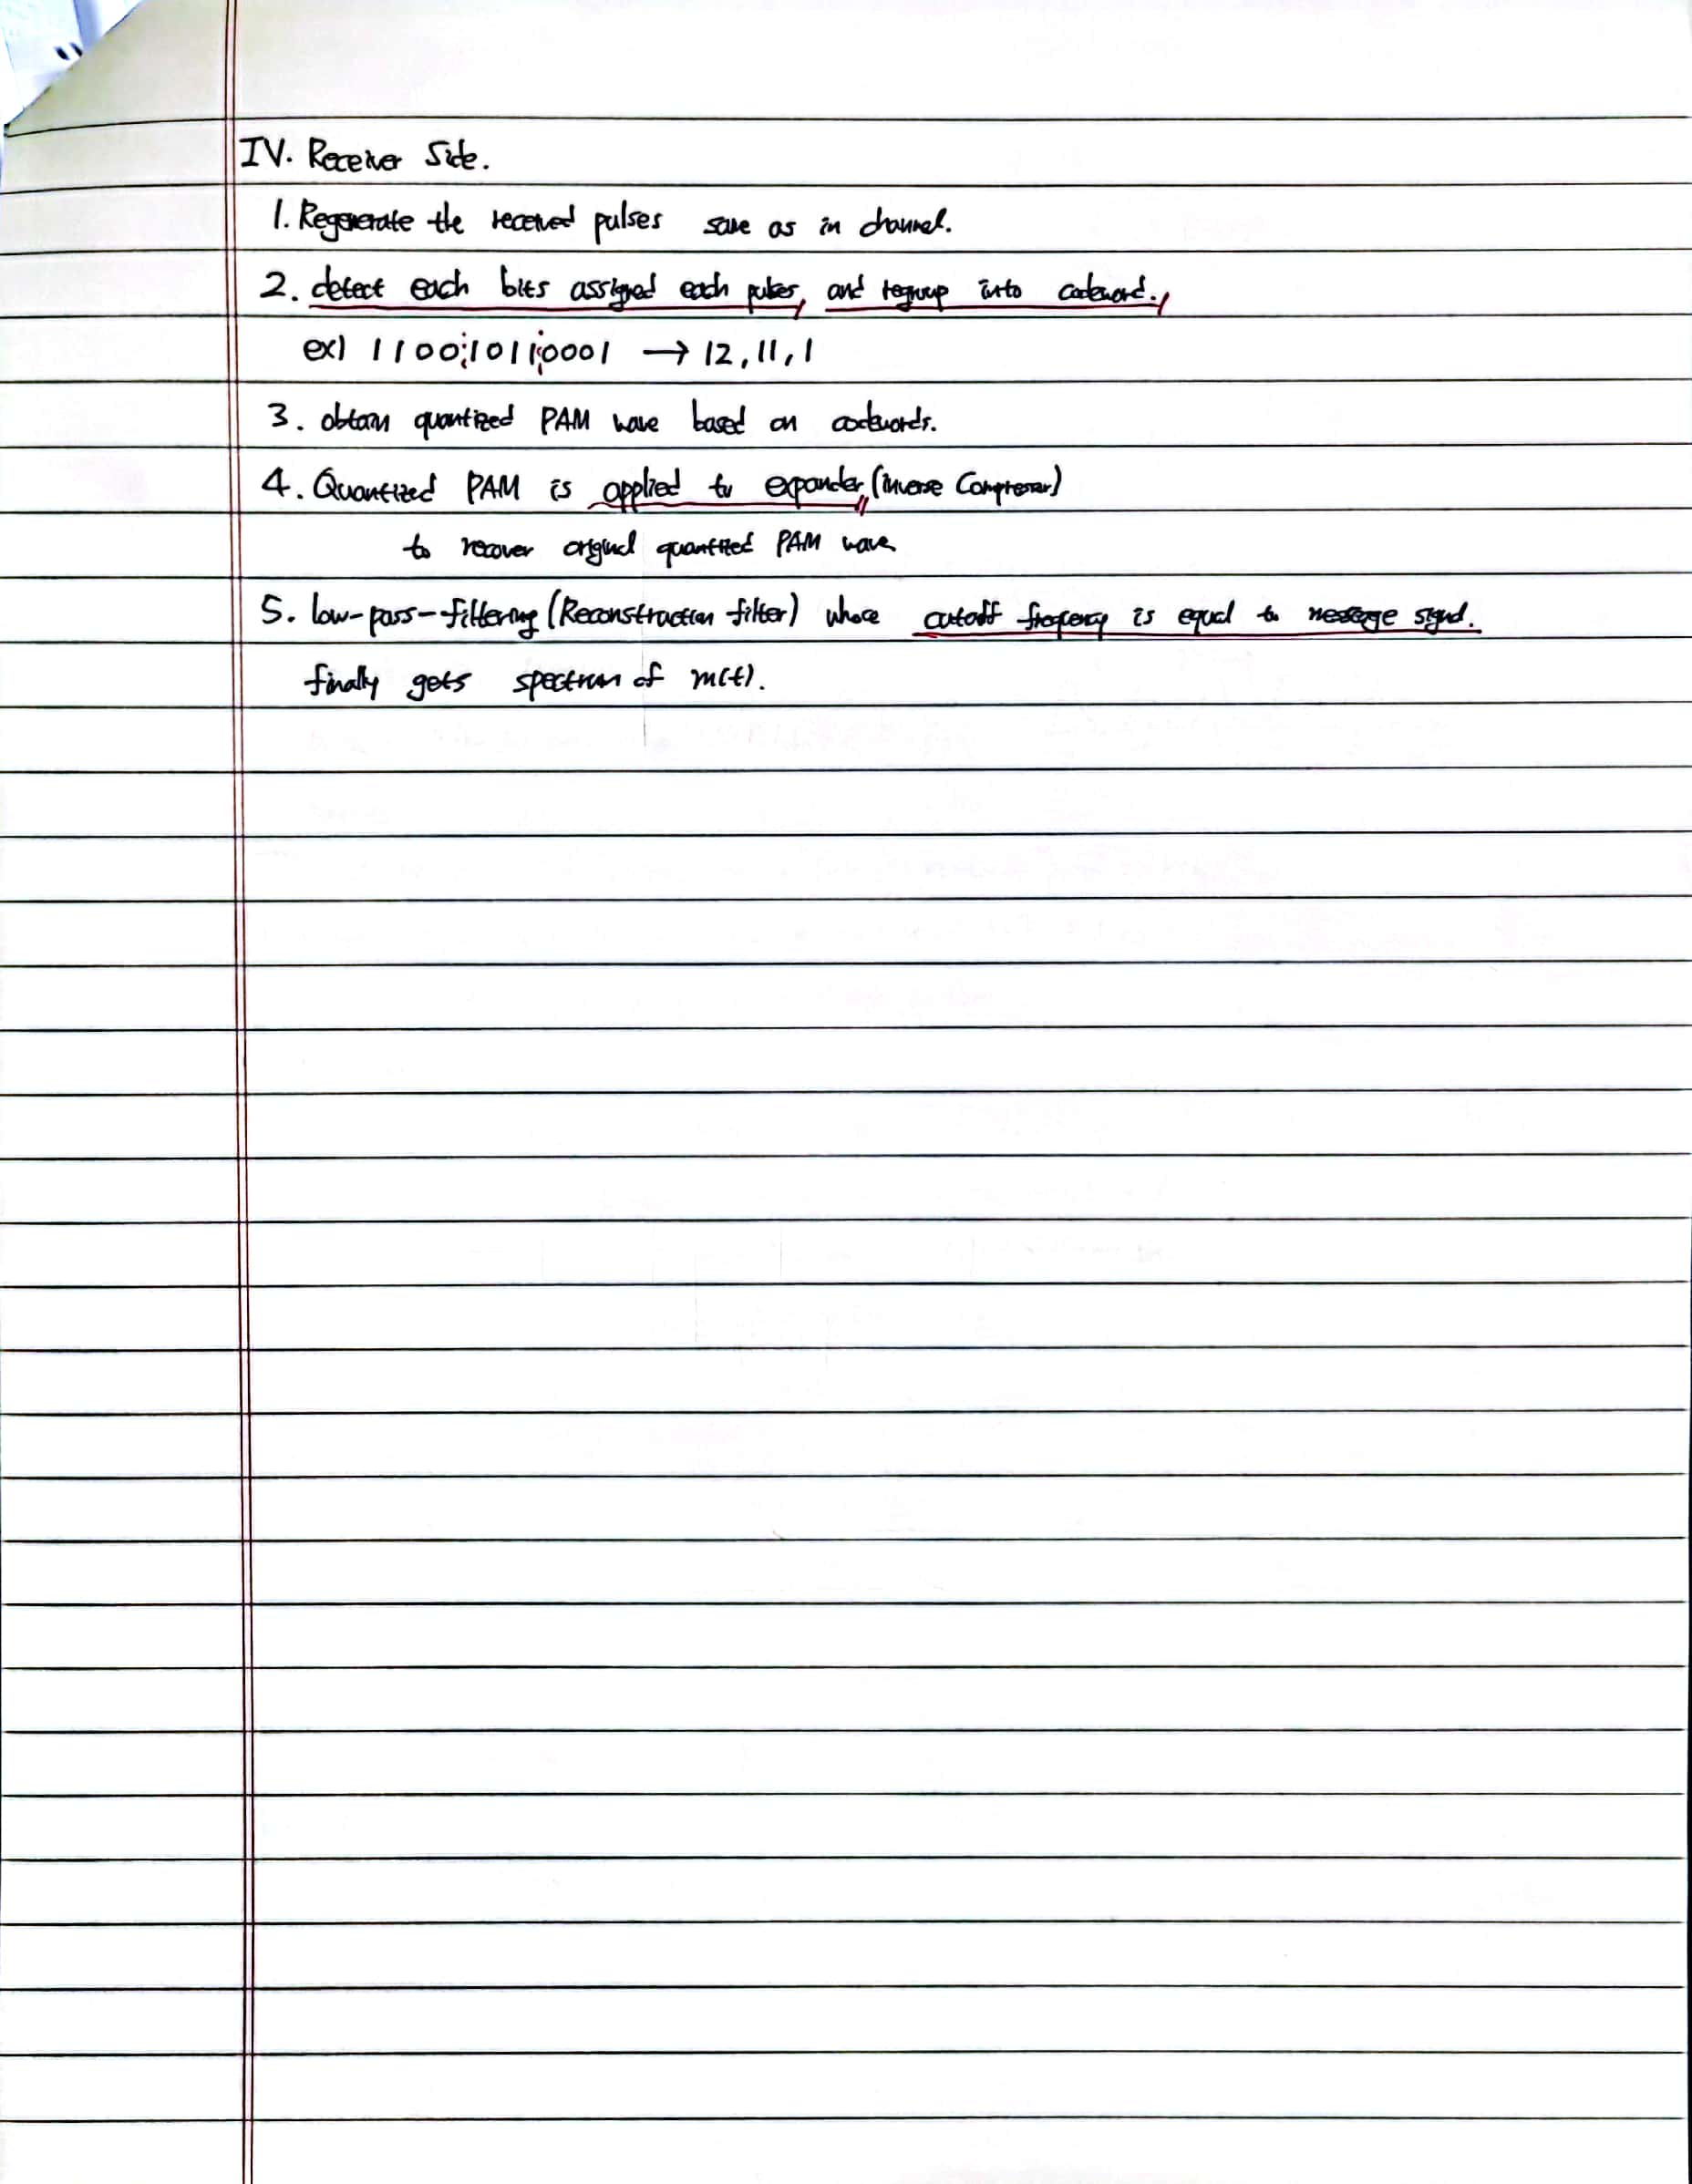 IV. Receiver Side.
1. Regenerate the received pulses same as in channel.
2. detect each bits assigned each pulses, and regroup into codeword.
ex) 1100;1011;0001 → 12, 11, 1
3. obtain quantized PAM wave based on codewords.
4. Quantized PAM is applied to expander (inverse Compressor)
to recover original quantized PAM wave
5. low-pass-filtering (Reconstruction filter) whose cutoff frequency is equal to message signal.
finally gets spectrum of m(t).